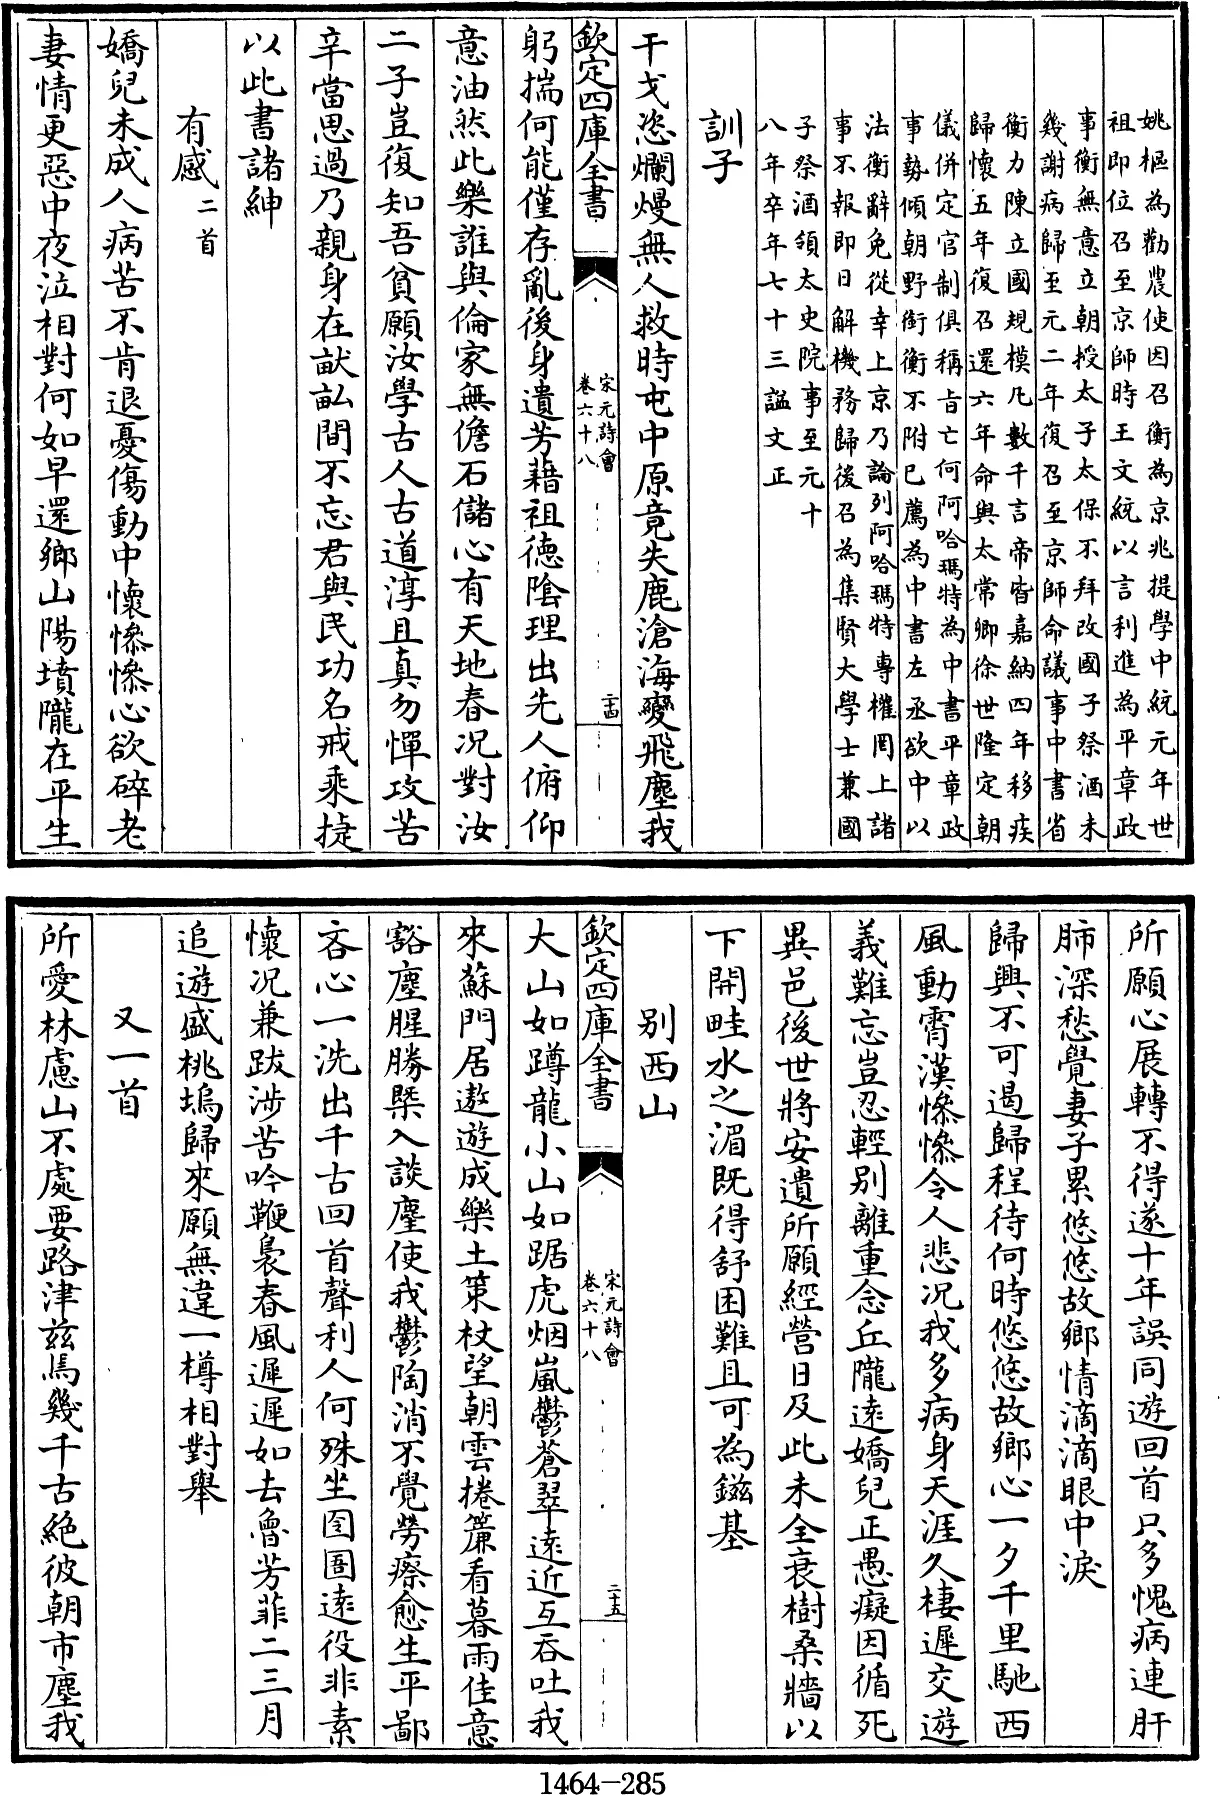 姚樞為勸農使因召衡為京兆提學中統元年世
祖即位召至京師時王文統以言利進為平章政
事衡無意立朝授太子太保不拜改國子祭酒未
幾謝病歸至元二年復召至京師命議事中書省
衡力陳立國規模凡數千言帝皆嘉納四年移疾
歸懷五年復召還六年命與太常卿徐世隆定朝
儀併定官制俱稱旨亡何阿哈瑪特為中書平章政
事勢傾朝野銜衡不附已薦為中書左丞欲中以
法衡辭免從幸上京乃論列阿哈瑪特專權罔上諸
事不報即日解機務歸後召為集賢大學士兼國
子祭酒領太史院事至元十
八年卒年七十三諡文正
訓子
干戈恣爛熳無人救時屯中原竟失鹿滄海變飛塵我
欽定四庫全書
宋元詩會
卷六十八
二十四
躬揣何能僅存亂後身遺芳藉祖德陰理出先人俯仰
意油然此樂誰與倫家無儋石儲心有天地春況對汝
二子豈復知吾貧願汝學古人古道淳且真勿憚攻苦
辛當思過乃親身在畎畝間不忘君與民功名戒乘捷
以此書諸紳
有感二首
嬌兒未成人病苦不肯退憂傷動中懷慘慘心欲碎老
妻情更惡中夜泣相對何如早還鄉山陽墳隴在平生
所願心展轉不得遂十年誤同遊回首只多愧病連肝
肺深愁覺妻子累悠悠故鄉情滴滴眼中淚
歸興不可遏歸程待何時悠悠故鄉心一夕千里馳西
風動霄漢慘慘令人悲況我多病身天涯久棲遲交遊
義難忘豈忍輕別離重念丘隴遠嬌兒正愚癡因循死
異邑後世將安遺所願經營日及此未全衰樹桑牆以
下開畦水之湄既得舒困難且可為鎡基
別西山
欽定四庫全書
宋元詩會
卷六十八
二十五
大山如蹲龍小山如踞虎烟嵐鬱蒼翠遠近互吞吐我
來蘇門居遨遊成樂土策杖望朝雲捲簾看暮雨佳意
豁塵腥勝槩入談麈使我鬱陶消不覺勞瘵愈生平鄙
吝心一洗出千古回首聲利人何殊坐囹圄遠役非素
懷况兼跋涉苦吟鞭裊春風遲遲如去魯芳菲二三月
追遊盛桃塢歸來願無違一樽相對舉
又一首
所愛林慮山不處要路津兹焉幾千古絶彼朝市塵我
1464-285